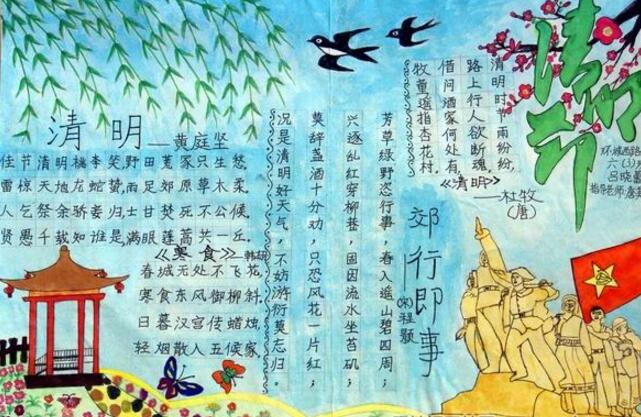 清明节
六(3)
指导老师:
清明时节雨纷纷,
路上行人欲断魂。
借问酒家何处有
牧童遥指杏花村。
《清明》
—杜牧
(唐)
郊行即事
(宋)程颢
芳草绿野恣行事,春入遥山碧四周;
兴逐乱红穿柳巷,困因流水坐苔矶;
莫辞盏酒十分劝,只恐风花一片红;
况是清明好天气,不妨游衍莫忘归。
清明—黄庭坚
佳节清明桃李笑,野田荒冢只生愁。
雷惊天地龙蛇蛰,雨足郊原草木柔。
人乞祭余骄妾归士甘焚死不公候。
贤愚千载知谁是,满眼蓬蒿共一丘。
《寒食》
春城无处不飞花,
寒食东风御柳斜。
日暮汉宫传蜡烛,
轻烟散入五候家